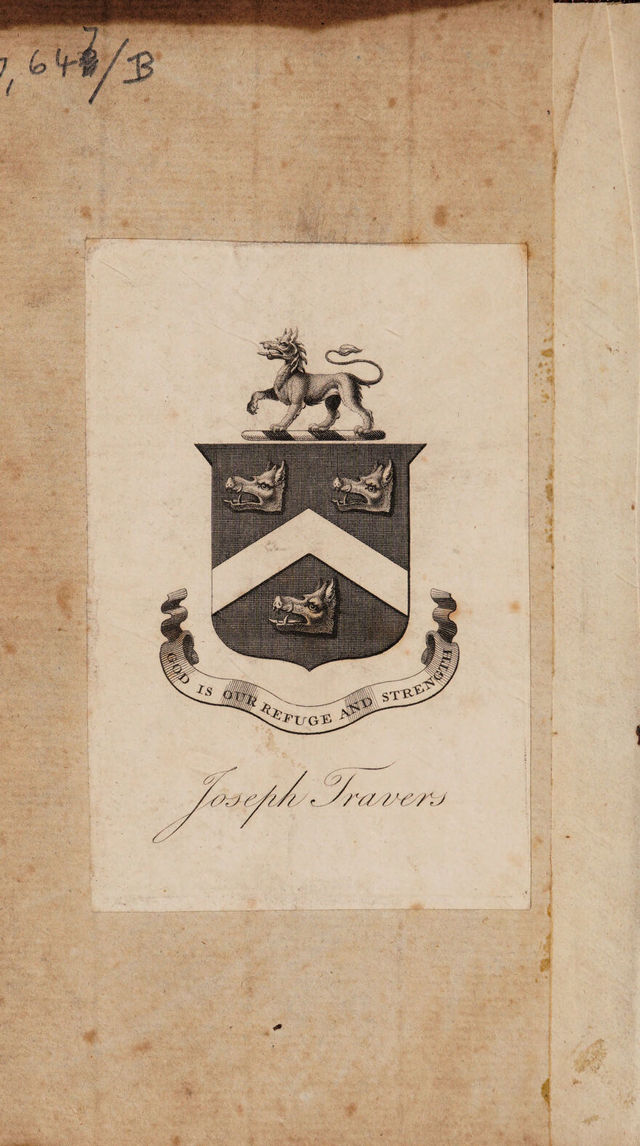 ,647/B
GOD IS OUR REFUGE AND STRENGTH
Joseph Travers